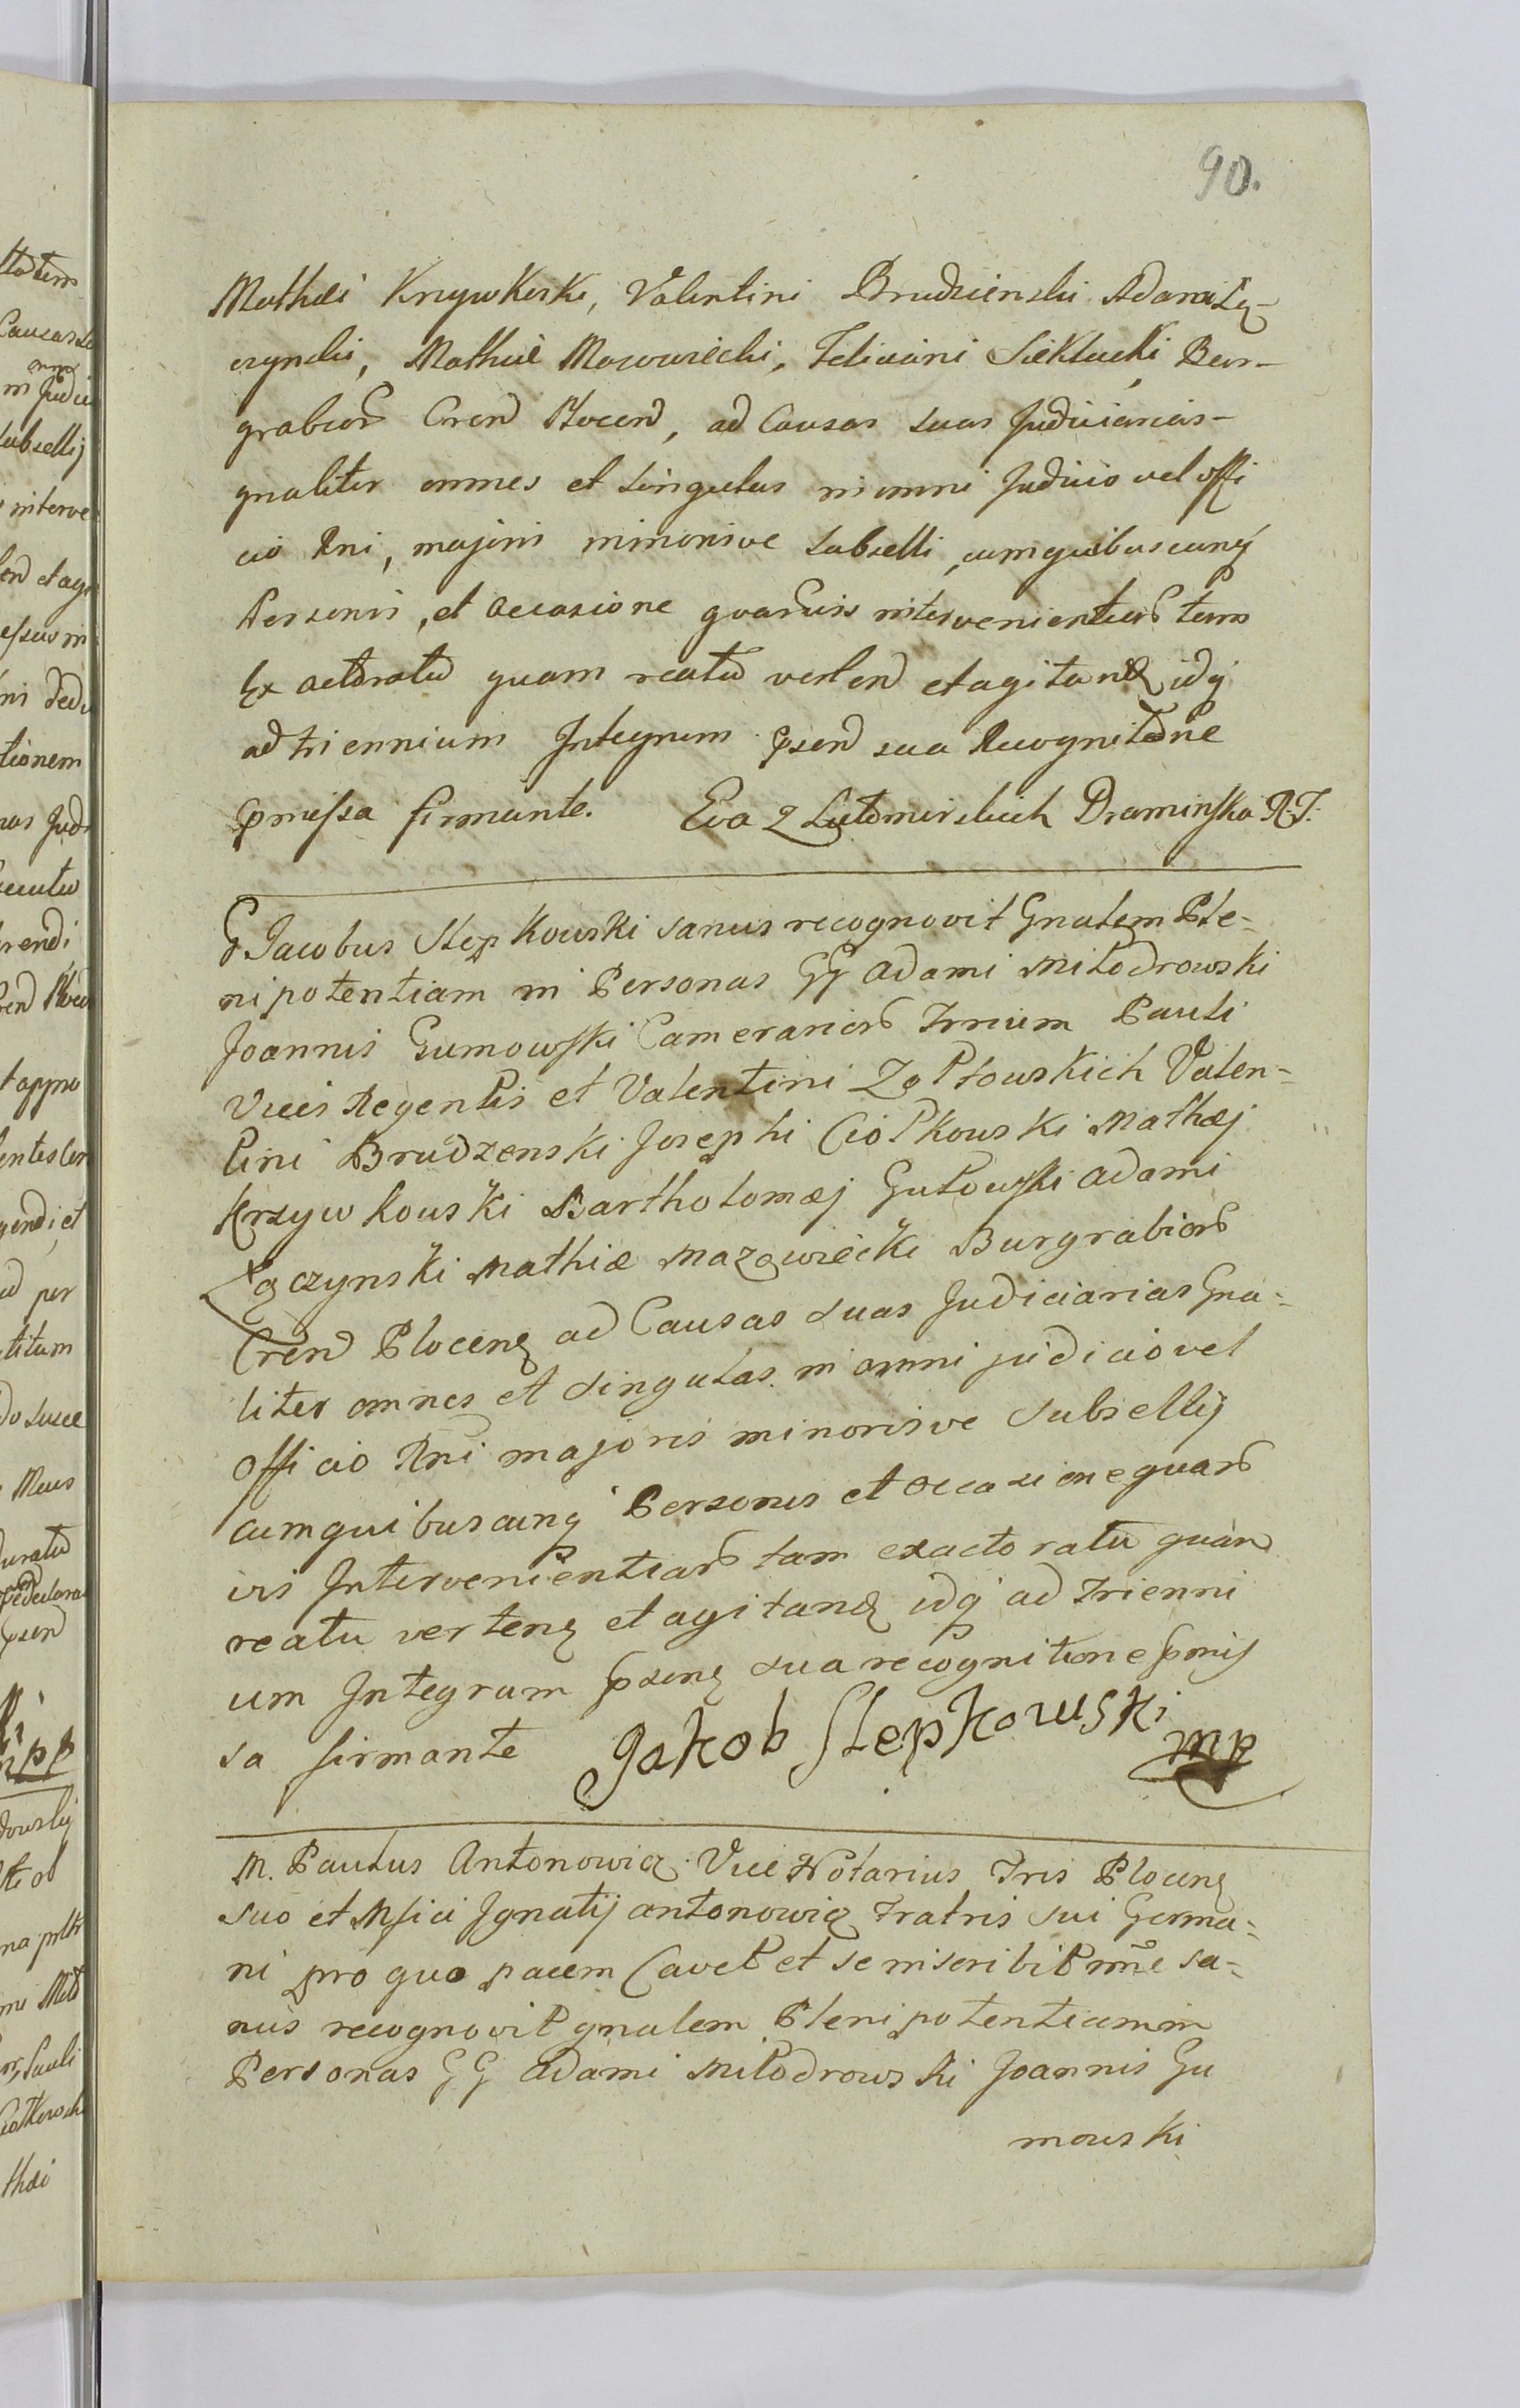 90.
Mathæi Krzywkoski, Valentini Brudzienski Adami Łą-
czynski, Mathiæ Mazowiecki, Feliciani Siekłucki, Bur-
grabior Cren Plocen, ad Causas suas Judiciarias
gnaliter omnes et singulas in omni Judicio vel offi
cio Rni, majoris minorisve subselli, cumquibuscunq
Personis, et occasione quarumvis intervenientiar tam
Ex actoratu quam reatu verten et agitand idq
ad triennium Integrum psen sua Recognitone
pmissa firmante. Eva z Lutomirskich Dramińska R.T.
G Jacobus Stepkowski sanus recognovit Gnalem Ple-
nipotentiam in Personas GG Adami Miłodrowski
Joannis Gumowski Camerarior Trrium Pauli
Vices Regentis et Valentini Zołtowskich Valen-
tini Brudzenski Josephi Ciołkowski Mathæj
Krzywkowski Bartholomæj Gutowski Adami
Łączynski Mathiæ Mazowiecki Burgrabior
Cren Plocen ad Causas suas Judiciarias Gna-
liter omnes et singulas in omni judicio vel
officio Rni majoris minorisve subsellij
cumquibuscunq Personis et occasione quar
vis Intervenientiar tam exactoratu quam
reatu verten et agitand idq ad trienni
um Integrum psen sua recognitione pmis
sa firmante Jakob Stepkowski mp
M. Paulus Antonowicz Vice Notarius Tris Plocen
suo et Mfici Ignatij Antonowicz Fratris sui Germa-
ni pro quo pacem Cavet et se inscribit nne sa-
nus recognovit gnalem Plenipotentiam in
Personas GG Adami Miłodrowski Joannis Gu
mowski